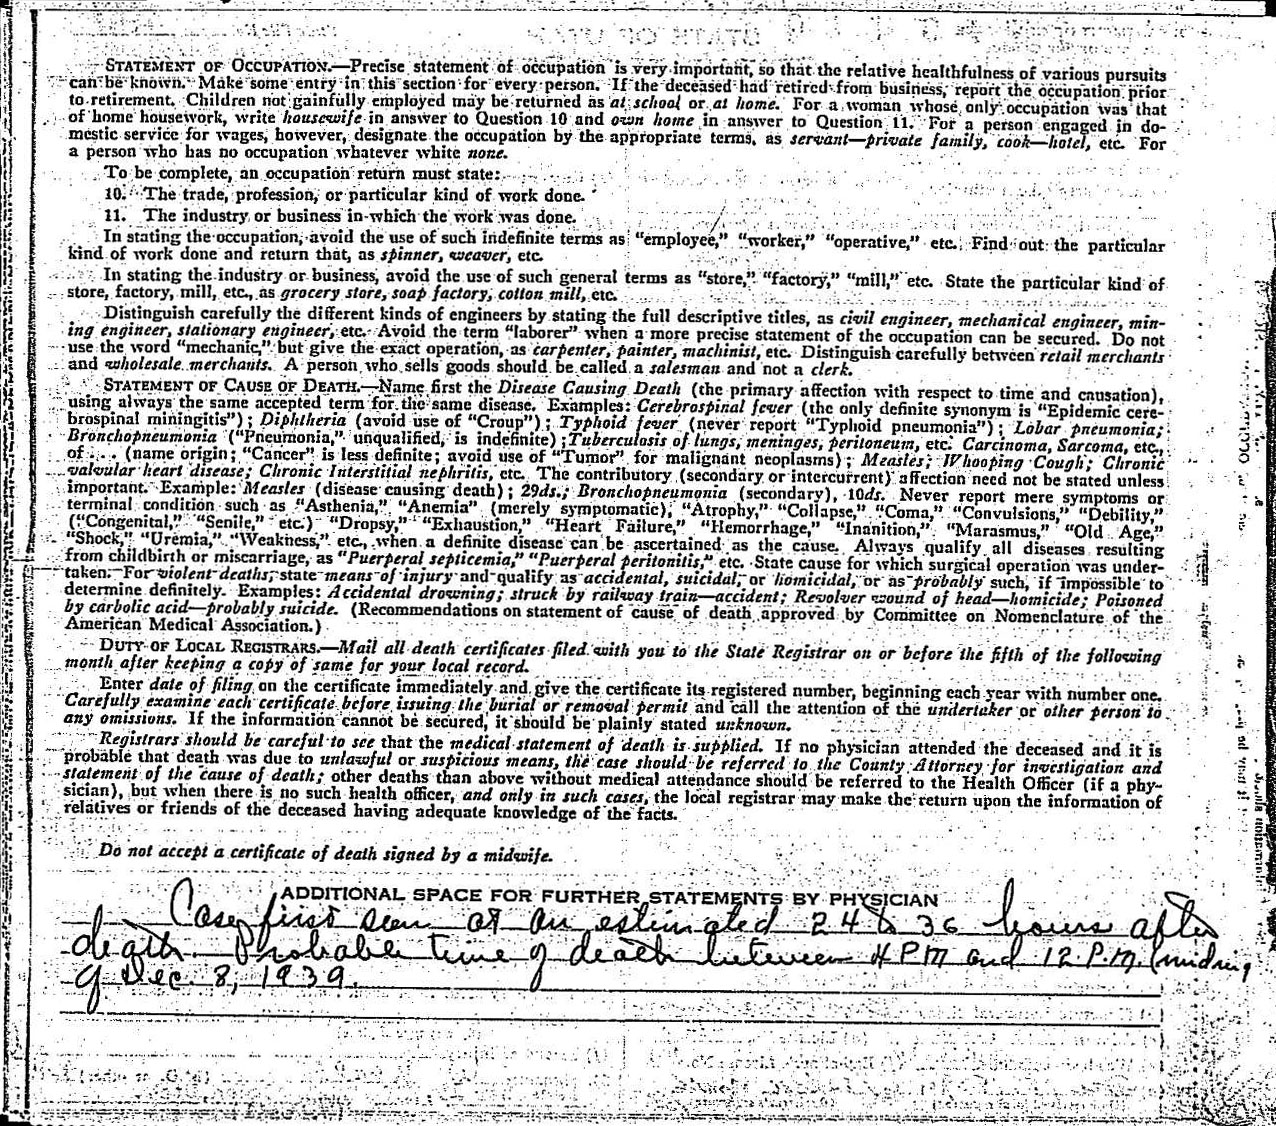 STATEMENT OF OCCUPATION.—Precise statement of occupation is very important, so that the relative healthfulness of various pursuits
can be known. Make some entry in this section for every person. If the deceased had retired from business, report the occupation prior
to retirement. Children not gainfully employed may be returned as at school or at home. For a woman whose only occupation was that
of home housework, write housewife in answer to Question 10 and own home in answer to Question 11. For a person engaged in do-
mestic service for wages, however, designate the occupation by the appropriate terms, as servant—private family, cook—hotel, etc. For
a person who has no occupation whatever white none.
To be complete, an occupation return must state:
10. The trade, profession, or particular kind of work done.
11. The industry or business in which the work was done.
In stating the occupation, avoid the use of such indefinite terms as "employee," "worker," "operative," etc. Find out the particular
kind of work done and return that, as spinner, weaver, etc.
In stating the industry or business, avoid the use of such general terms as "store," "factory," "mill," etc. State the particular kind of
store, factory, mill, etc., as grocery store, soap factory, cotton mill, etc.
Distinguish carefully the different kinds of engineers by stating the full descriptive titles, as civil engineer, mechanical engineer, min-
ing engineer, stationary engineer, etc. Avoid the term "laborer" when a more precise statement of the occupation can be secured. Do not
use the word "mechanic," but give the exact operation, as carpenter, painter, machinist, etc. Distinguish carefully between retail merchants
and wholesale merchants. A person who sells goods should be called a salesman and not a clerk.
STATEMENT OF CAUSE OF DEATH.—Name first the Disease Causing Death (the primary affection with respect to time and causation),
using always the same accepted term for the same disease. Examples: Cerebrospinal fever (the only definite synonym is "Epidemic cere-
brospinal miningitis"); Diphtheria (avoid use of "Croup"); Typhoid fever (never report "Typhoid pneumonia"); Lobar pneumonia;
Bronchopneumonia ("Pneumonia," unqualified, is indefinite); Tuberculosis of lungs, meninges, peritoneum, etc. Carcinoma, Sarcoma, etc.,
of ... (name origin; "Cancer" is less definite; avoid use of "Tumor" for malignant neoplasms); Measles; Whooping Cough; Chronic
valvular heart disease; Chronic Interstitial nephritis, etc. The contributory (secondary or intercurrent) affection need not be stated unless
important. Example: Measles (disease causing death); 29ds.; Bronchopneumonia (secondary), 10ds. Never report mere symptoms or
terminal condition such as "Asthenia," "Anemia" (merely symptomatic), "Atrophy," "Collapse," "Coma," "Convulsions," "Debility,"
("Congenital," "Senile," etc.) "Dropsy," "Exhaustion," "Heart Failure," "Hemorrhage," "Inanition," "Marasmus," "Old Age,"
"Shock," "Uremia," "Weakness," etc., when a definite disease can be ascertained as the cause. Always qualify all diseases resulting
from childbirth or miscarriage, as "Puerperal septicemia," "Puerperal peritonitis," etc. State cause for which surgical operation was under-
taken. For violent deaths, state means of injury and qualify as accidental, suicidal, or homicidal, or as probably such, if impossible to
determine definitely. Examples: Accidental drowning; struck by railway train—accident; Revolver wound of head—homicide; Poisoned
by carbolic acid—probably suicide. (Recommendations on statement of cause of death approved by Committee on Nomenclature of the
American Medical Association.)
DUTY OF LOCAL REGISTRARS.—Mail all death certificates filed with you to the State Registrar on or before the fifth of the following
month after keeping a copy of same for your local record.
Enter date of filing on the certificate immediately and give the certificate its registered number, beginning each year with number one.
Carefully examine each certificate before issuing the burial or removal permit and call the attention of the undertaker or other person to
any omissions. If the information cannot be secured, it should be plainly stated unknown.
Registrars should be careful to see that the medical statement of death is supplied. If no physician attended the deceased and it is
probable that death was due to unlawful or suspicious means, the case should be referred to the County Attorney for investigation and
statement of the cause of death; other deaths than above without medical attendance should be referred to the Health Officer (if a phy-
sician), but when there is no such health officer, and only in such cases, the local registrar may make the return upon the information of
relatives or friends of the deceased having adequate knowledge of the facts.
Do not accept a certificate of death signed by a midwife.
ADDITIONAL SPACE FOR FURTHER STATEMENTS BY PHYSICIAN
Case first seen at an estimated 24 to 36 hours after
death. Probable time of death between 4 PM and 12 P.M. (midnig
of Dec. 8, 1939.